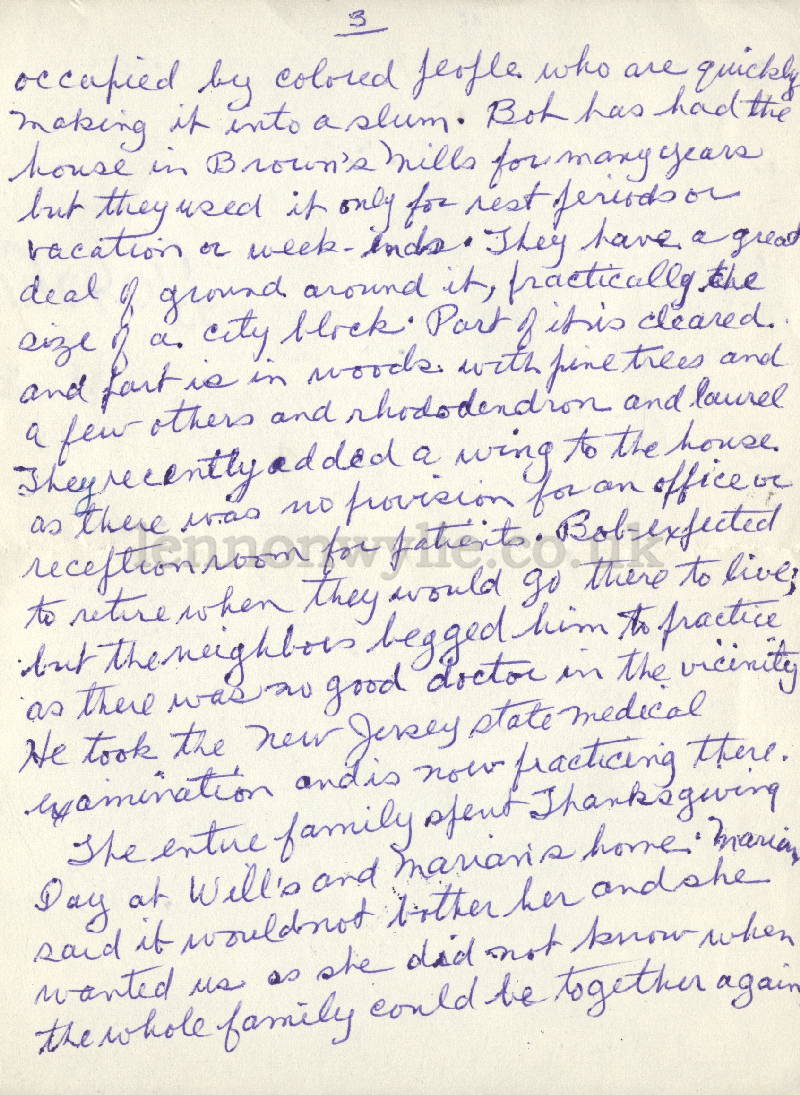 3
occupied by colored people who are quickly
making it into a slum. Bob has had the
house in Brown's Mills for many years
but they used it only for rest periods or
vacation or week-ends. They have a great
deal of ground around it, practically the
size of a city block. Part of it is cleared
and part is in woods with pine trees and
a few others and rhododendron and laurel
They recently added a wing to the house
as there was no provision for an office or
reception room for patients. Bob expected
lennonwylie.co.uk
to retire when they would go there to live;
but the neighbors begged him to practice
as there was no good doctor in the vicinity
He took the New Jersey state medical
examination and is now practicing there.
The entire family spent Thanksgiving
Day at Will's and Marian's home. Marian
said it would not bother her and she
wanted us as she did not know when
the whole family could be together again